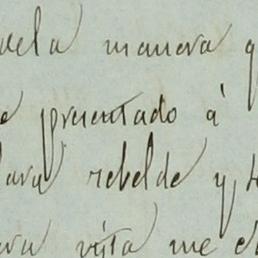 vela manera q
e presentado á
lara rebelde y t
ara vista me d